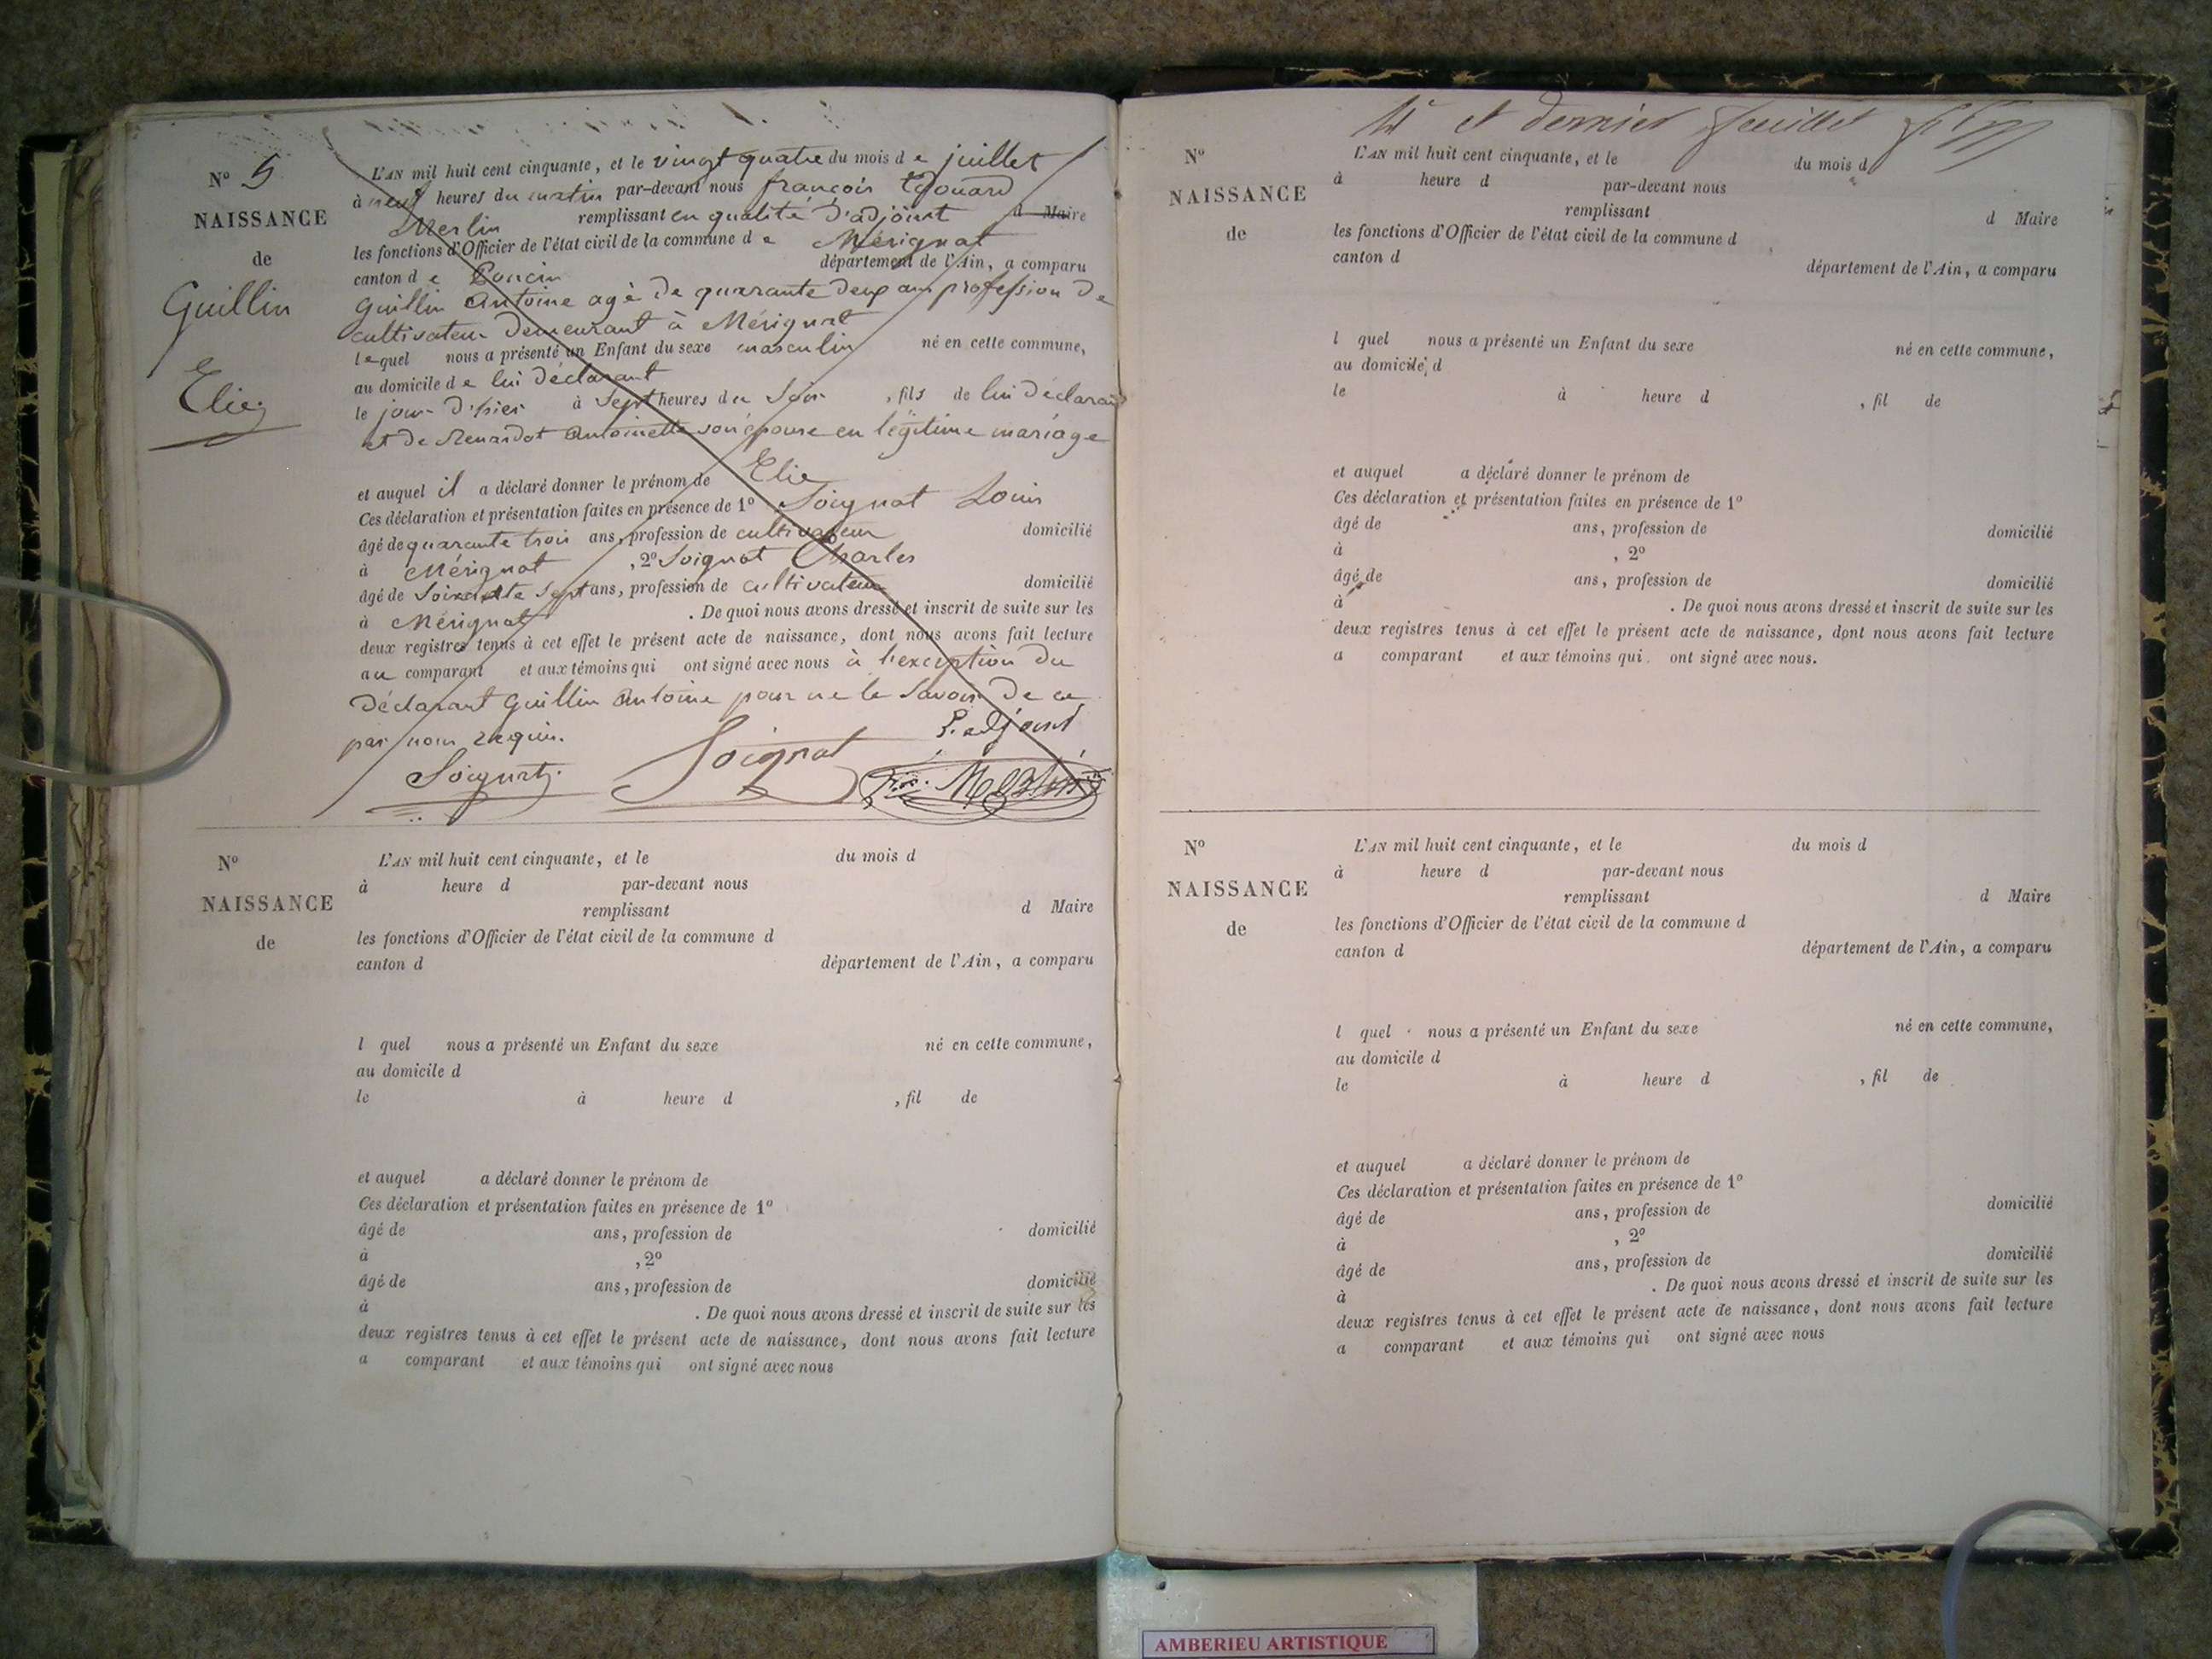 N° 5
NAISSANCE
de
Guillin
Elie
L'AN mil huit cent cinquante, et le vingt quatre du mois de juillet
à neuf heures du matin par-devant nous françois Edouard
Merlin remplissant en qualité d'adjoint d Maire
les fonctions d'Officier de l'état civil de la commune de Mérignat
canton de Poncin département de l'Ain, a comparu
Guillin Antoine agé de quarante deux ans profession de
cultivateur demeurant à Mérignat
lequel nous a présenté un Enfant du sexe masculin né en cette commune,
au domicile de lui déclarant
le jour d'hier à Sept heures du Soir, fils de lui déclarant
et de Renardot Antoinette son épouse en légitime mariage
et auquel il a déclaré donner le prénom de Elie
Ces déclaration et présentation faites en présence de 1° Soignat Louis
âgé de quarante trois ans, profession de cultivateur domicilié
à Mérignat, 2° Soignat Charles
âgé de Soixante Sept ans, profession de cultivateur domicilié
à Mérignat. De quoi nous avons dressé et inscrit de suite sur les
deux registres tenus à cet effet le présent acte de naissance, dont nous avons fait lecture
au comparant et aux témoins qui ont signé avec nous à l'exception du
déclarant Guillin Antoine pour ne le Savoir de ce
par nous requis.
L'adjoint
Soignat Soignat Merlin
N°
NAISSANCE
de
L'AN mil huit cent cinquante, et le du mois d
à heure d par-devant nous
remplissant d Maire
les fonctions d'Officier de l'état civil de la commune d
canton d département de l'Ain, a comparu
l quel nous a présenté un Enfant du sexe né en cette commune,
au domicile d
le à heure d , fil de
et auquel a déclaré donner le prénom de
Ces déclaration et présentation faites en présence de 1°
âgé de ans, profession de domicilié
à , 2°
âgé de ans, profession de domicilié
à . De quoi nous avons dressé et inscrit de suite sur les
deux registres tenus à cet effet le présent acte de naissance, dont nous avons fait lecture
a comparant et aux témoins qui ont signé avec nous
et dernier feuillet
N°
NAISSANCE
de
L'AN mil huit cent cinquante, et le du mois d
à heure d par-devant nous
remplissant d Maire
les fonctions d'Officier de l'état civil de la commune d
canton d département de l'Ain, a comparu
l quel nous a présenté un Enfant du sexe né en cette commune,
au domicile d
le à heure d , fil de
et auquel a déclaré donner le prénom de
Ces déclaration et présentation faites en présence de 1°
âgé de ans, profession de domicilié
à , 2°
âgé de ans, profession de domicilié
à . De quoi nous avons dressé et inscrit de suite sur les
deux registres tenus à cet effet le présent acte de naissance, dont nous avons fait lecture
a comparant et aux témoins qui ont signé avec nous.
N°
NAISSANCE
de
L'AN mil huit cent cinquante, et le du mois d
à heure d par-devant nous
remplissant d Maire
les fonctions d'Officier de l'état civil de la commune d
canton d département de l'Ain, a comparu
l quel nous a présenté un Enfant du sexe né en cette commune,
au domicile d
le à heure d , fil de
et auquel a déclaré donner le prénom de
Ces déclaration et présentation faites en présence de 1°
âgé de ans, profession de domicilié
à , 2°
âgé de ans, profession de domicilié
à . De quoi nous avons dressé et inscrit de suite sur les
deux registres tenus à cet effet le présent acte de naissance, dont nous avons fait lecture
a comparant et aux témoins qui ont signé avec nous
AMBERIEU ARTISTIQUE